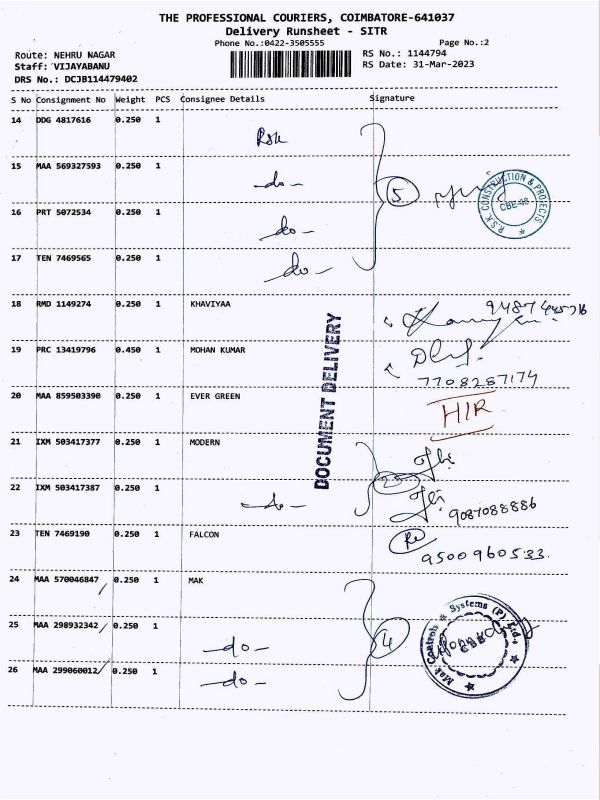 THE PROFESSIONAL COURIERS, COIMBATORE-641037
Delivery Runsheet - SITR
Phone No.:0422-3505555 Page No.:2
Route: NEHRU NAGAR RS No.: 1144794
Staff: VIJAYABANU RS Date: 31-Mar-2023
DRS No.: DCJB114479402
S No Consignment No Weight PCS Consignee Details Signature
14 DDG 4817616 0.250 1 RSK
15 MAA 569327593 0.250 1 -do-
5
R.S.K. CONSTRUCTION & PROJECTS
CBE-48
16 PRT 5072534 0.250 1 -do-
17 TEN 7469565 0.250 1 -do-
18 RMD 1149274 0.250 1 KHAVIYAA
19 PRC 13419796 0.450 1 MOHAN KUMAR
7708287174
DOCUMENT DELIVERY
20 MAA 859503390 0.250 1 EVER GREEN HIR
21 IXM 503417377 0.250 1 MODERN
22 IXM 503417387 0.250 1 -do- 9087088886
23 TEN 7469190 0.250 1 FALCON
9500960533
24 MAA 570046847 0.250 1 MAK
25 MAA 298932342 0.250 1 -do- 4
Mak Controls & Systems (P) Ltd.,
26 MAA 299060012 0.250 1 -do-